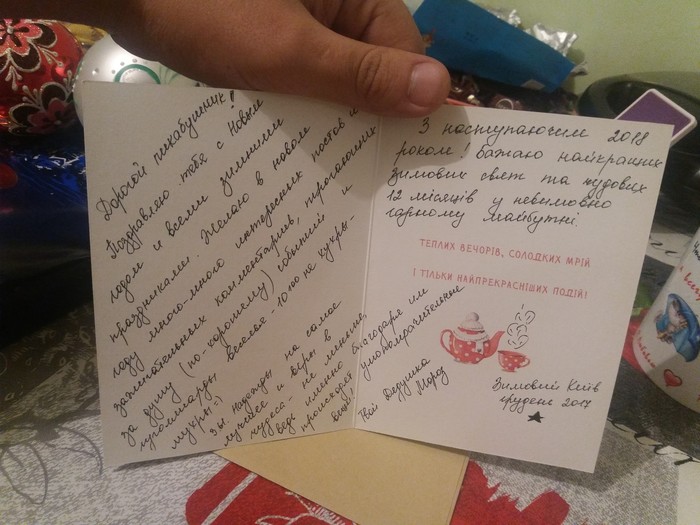 Дорогой пикабушник!
Поздравляю тебя с Новым
годом и всеми зимними
праздниками. Желаю в новом
году много-много интересных постов и
замечательных комментариев, трогающих
за душу (по-хорошему) событий и
веселья - 10 по
мукры?)
Зы. Надежды на самое
лучшее и веры в
чудеса - не меньше,
ведь именно благодаря им
происходят умопомрачительные
вещи!
Твой Дедушка
Мороз
З наступаючим 2018
роком! Бажаю найкращих
зимових свят та чудових
12 місяців у неймовірно
гарному майбутні.
ТЕПЛИХ ВЕЧОРІВ, СОЛОДКИХ МРІЙ
І ТІЛЬКИ НАЙПРЕКРАСНІШИХ ПОДІЙ!
Зимовий Київ
грудень 2017